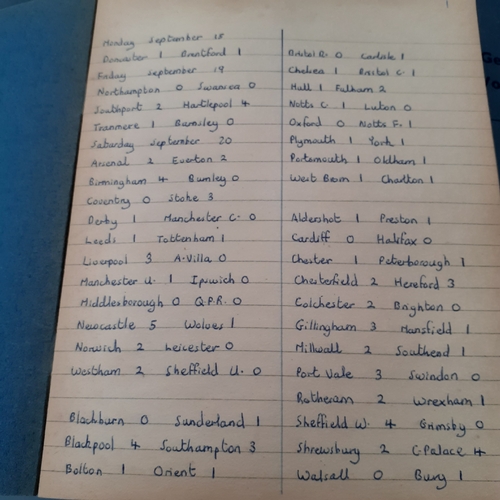 Monday September 15
Doncaster 1 Brentford 1
Friday September 19
Northampton 0 Swansea 0
Southport 2 Hartlepool 4
Tranmere 1 Barnsley 0
Saturday September 20
Arsenal 2 Everton 2
Birmingham 4 Burnley 0
Coventry 0 Stoke 3
Derby 1 Manchester C. 0
Leeds 1 Tottenham 1
Liverpool 3 A. Villa 0
Manchester U. 1 Ipswich 0
Middlesborough 0 Q.P.R. 0
Newcastle 5 Wolves 1
Norwich 2 Leicester 0
Westham 2 Sheffield U. 0
Blackburn 0 Sunderland 1
Blackpool 4 Southampton 3
Bolton 1 Orient 1
Bristol R. 0 Carlisle 1
Chelsea 1 Bristol C. 1
Hull 1 Fulham 2
Notts C. 1 Luton 0
Oxford 0 Notts F. 1
Plymouth 1 York 1
Portsmouth 1 Oldham 1
West Brom 1 Charlton 1
Aldershot 1 Preston 1
Cardiff 0 Halifax 0
Chester 1 Peterborough 1
Chesterfield 2 Hereford 3
Colchester 2 Brighton 0
Gillingham 3 Mansfield 1
Millwall 2 Southend 1
Port Vale 3 Swindon 0
Rotheram 2 Wrexham 1
Sheffield W. 4 Grimsby 0
Shrewsbury 2 C. Palace 4
Walsall 0 Bury 1